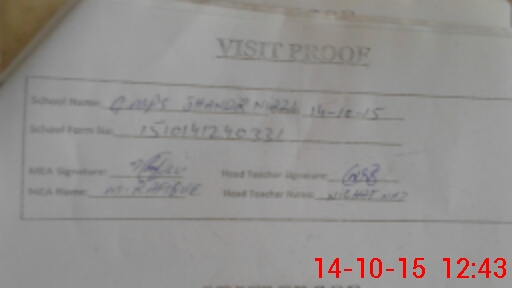 VISIT PROOF
School Name: GMPS JHANDR 14-10-15
School Form No: 1510141240331
MEA Signature: Head Teacher Signature:
MEA Name: M. RAFIQUE Head Teacher Name: NIGHAT NAZ
14-10-15 12:43